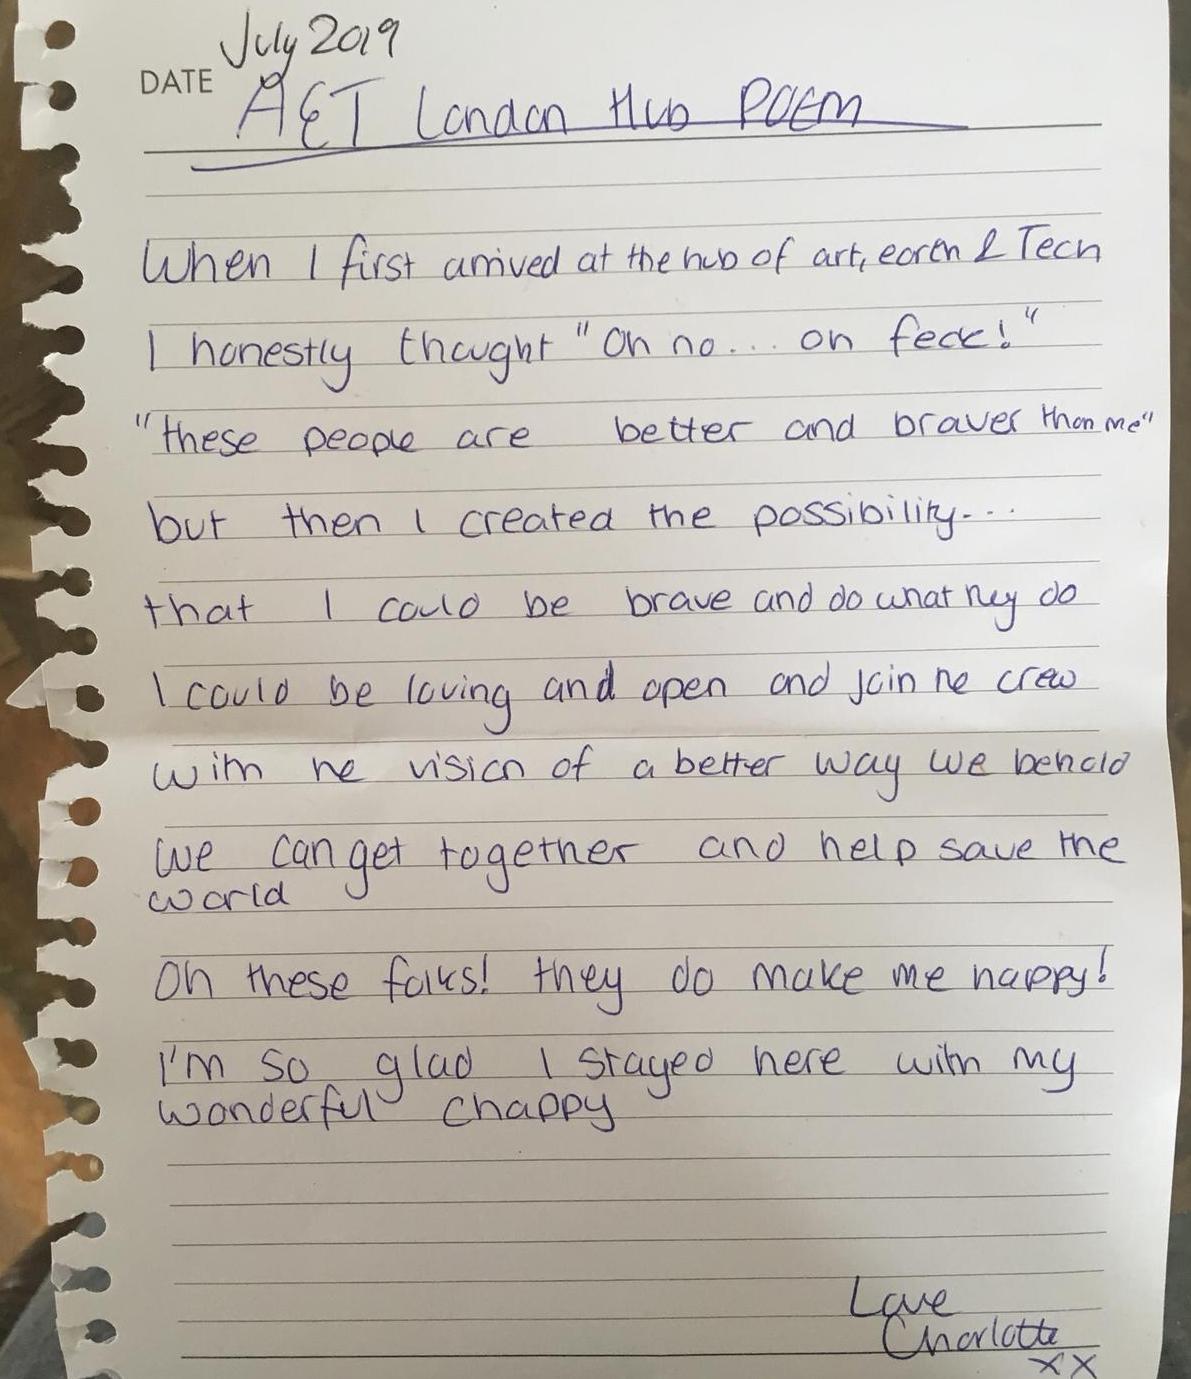 July 2019
DATE
AET London Hub POEM
When I first arrived at the hub of art, earth & Tech
I honestly thought "Oh no... oh feck!"
"these people are better and braver than me"
but then I created the possibility....
that I could be brave and do what they do
I could be loving and open and join the crew
with the vision of a better way we behold
we can get together and help save the
world
Oh these folks! they do make me happy!
I'm so glad I stayed here with my
wonderful chappy
Love
Charlotte
xx